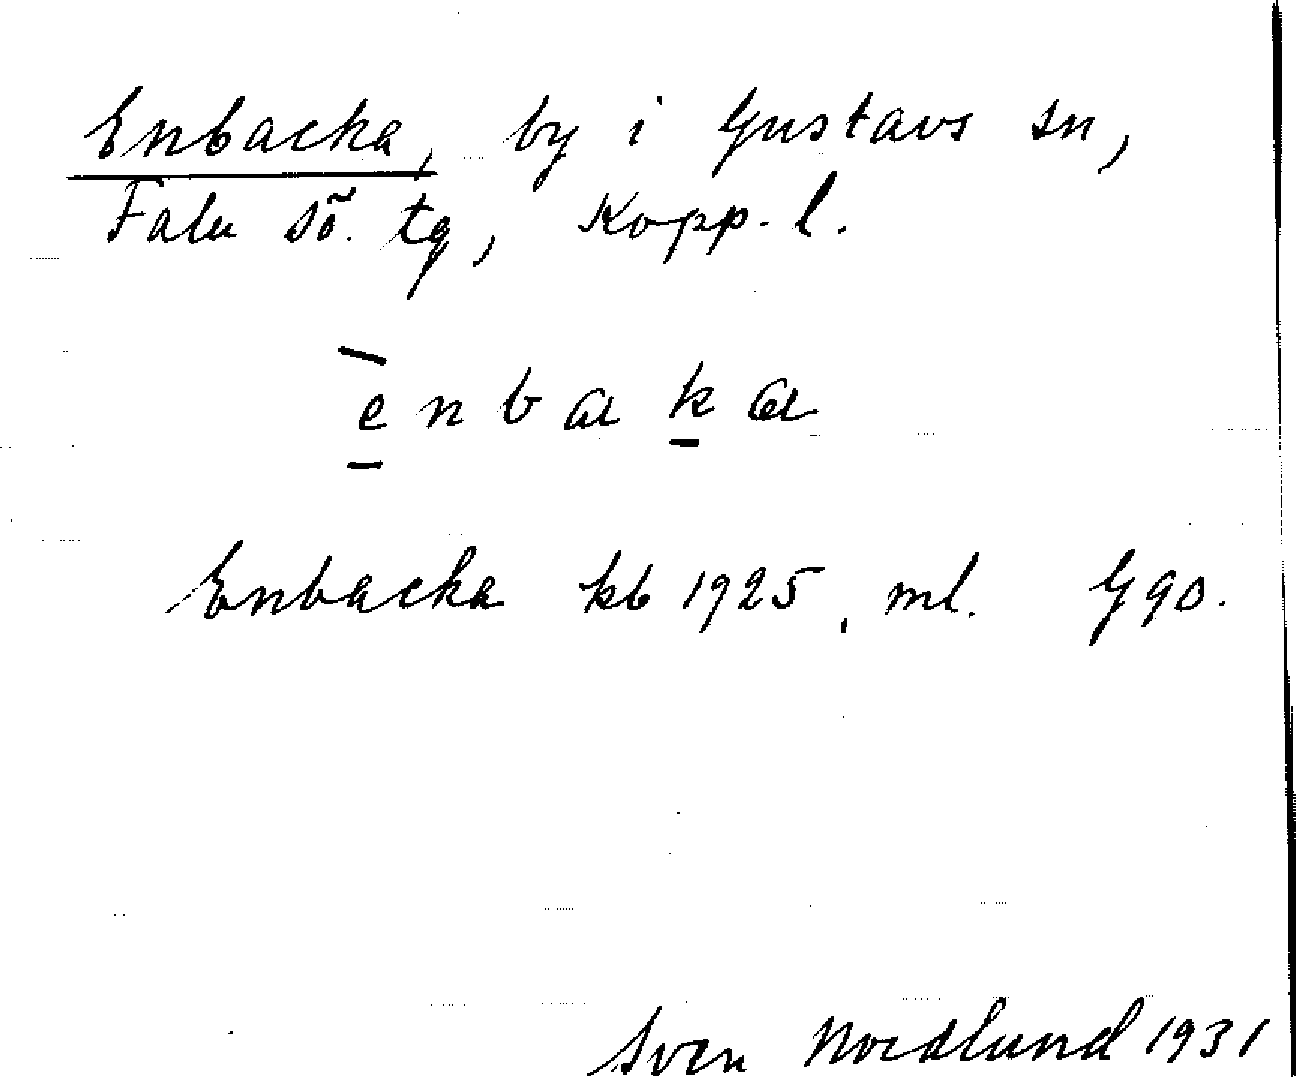 Enbacka, by i Gustavs sn,
Falu sö. tg, Kopp. l.
e n b a k a
Enbacka kb 1925, ml. G 90.
Sven Nordlund 1931